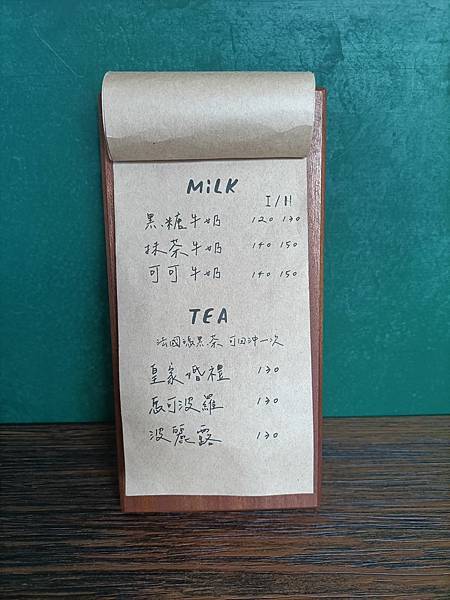 MiLK
I/H
黑糖牛奶 120 130
抹茶牛奶 140 150
可可牛奶 140 150
TEA
法國瑪黑茶 可回沖一次
皇家婚禮 130
馬可波羅 130
波麗露 130